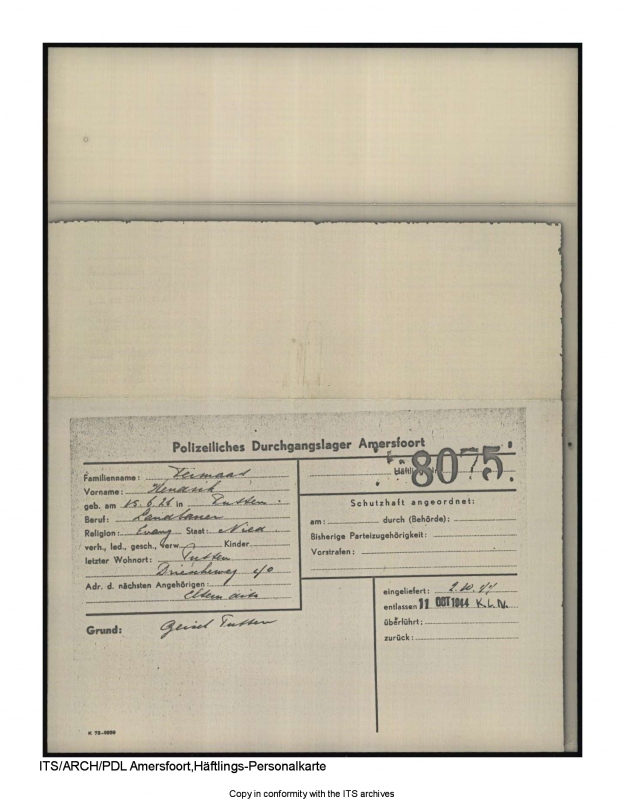 Polizeiliches Durchgangslager Amersfoort
Häftlings Nr. 8075
Familienname:
Vorname: Hendrik
geb. am 15.6.26 in Putten
Beruf: Landbauer
Religion: Evang Staat: Nied.
verh., led., gesch., verw. Kinder
letzter Wohnort: Putten
Driescheweg
Adr. d. nächsten Angehörigen:
Eltern dito
Grund: Geisel Putten
Schutzhaft angeordnet:
am: durch (Behörde):
Bisherige Parteizugehörigkeit:
Vorstrafen:
eingeliefert: 2.10.44
entlassen 11 OCT 1944 K.L.N.
überführt:
zurück:
ITS/ARCH/PDL Amersfoort,Häftlings-Personalkarte
Copy in conformity with the ITS archives